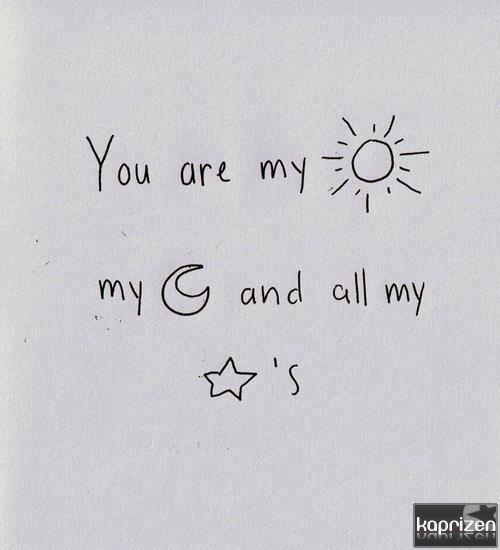 You are my
my and all my
's
kaprizen